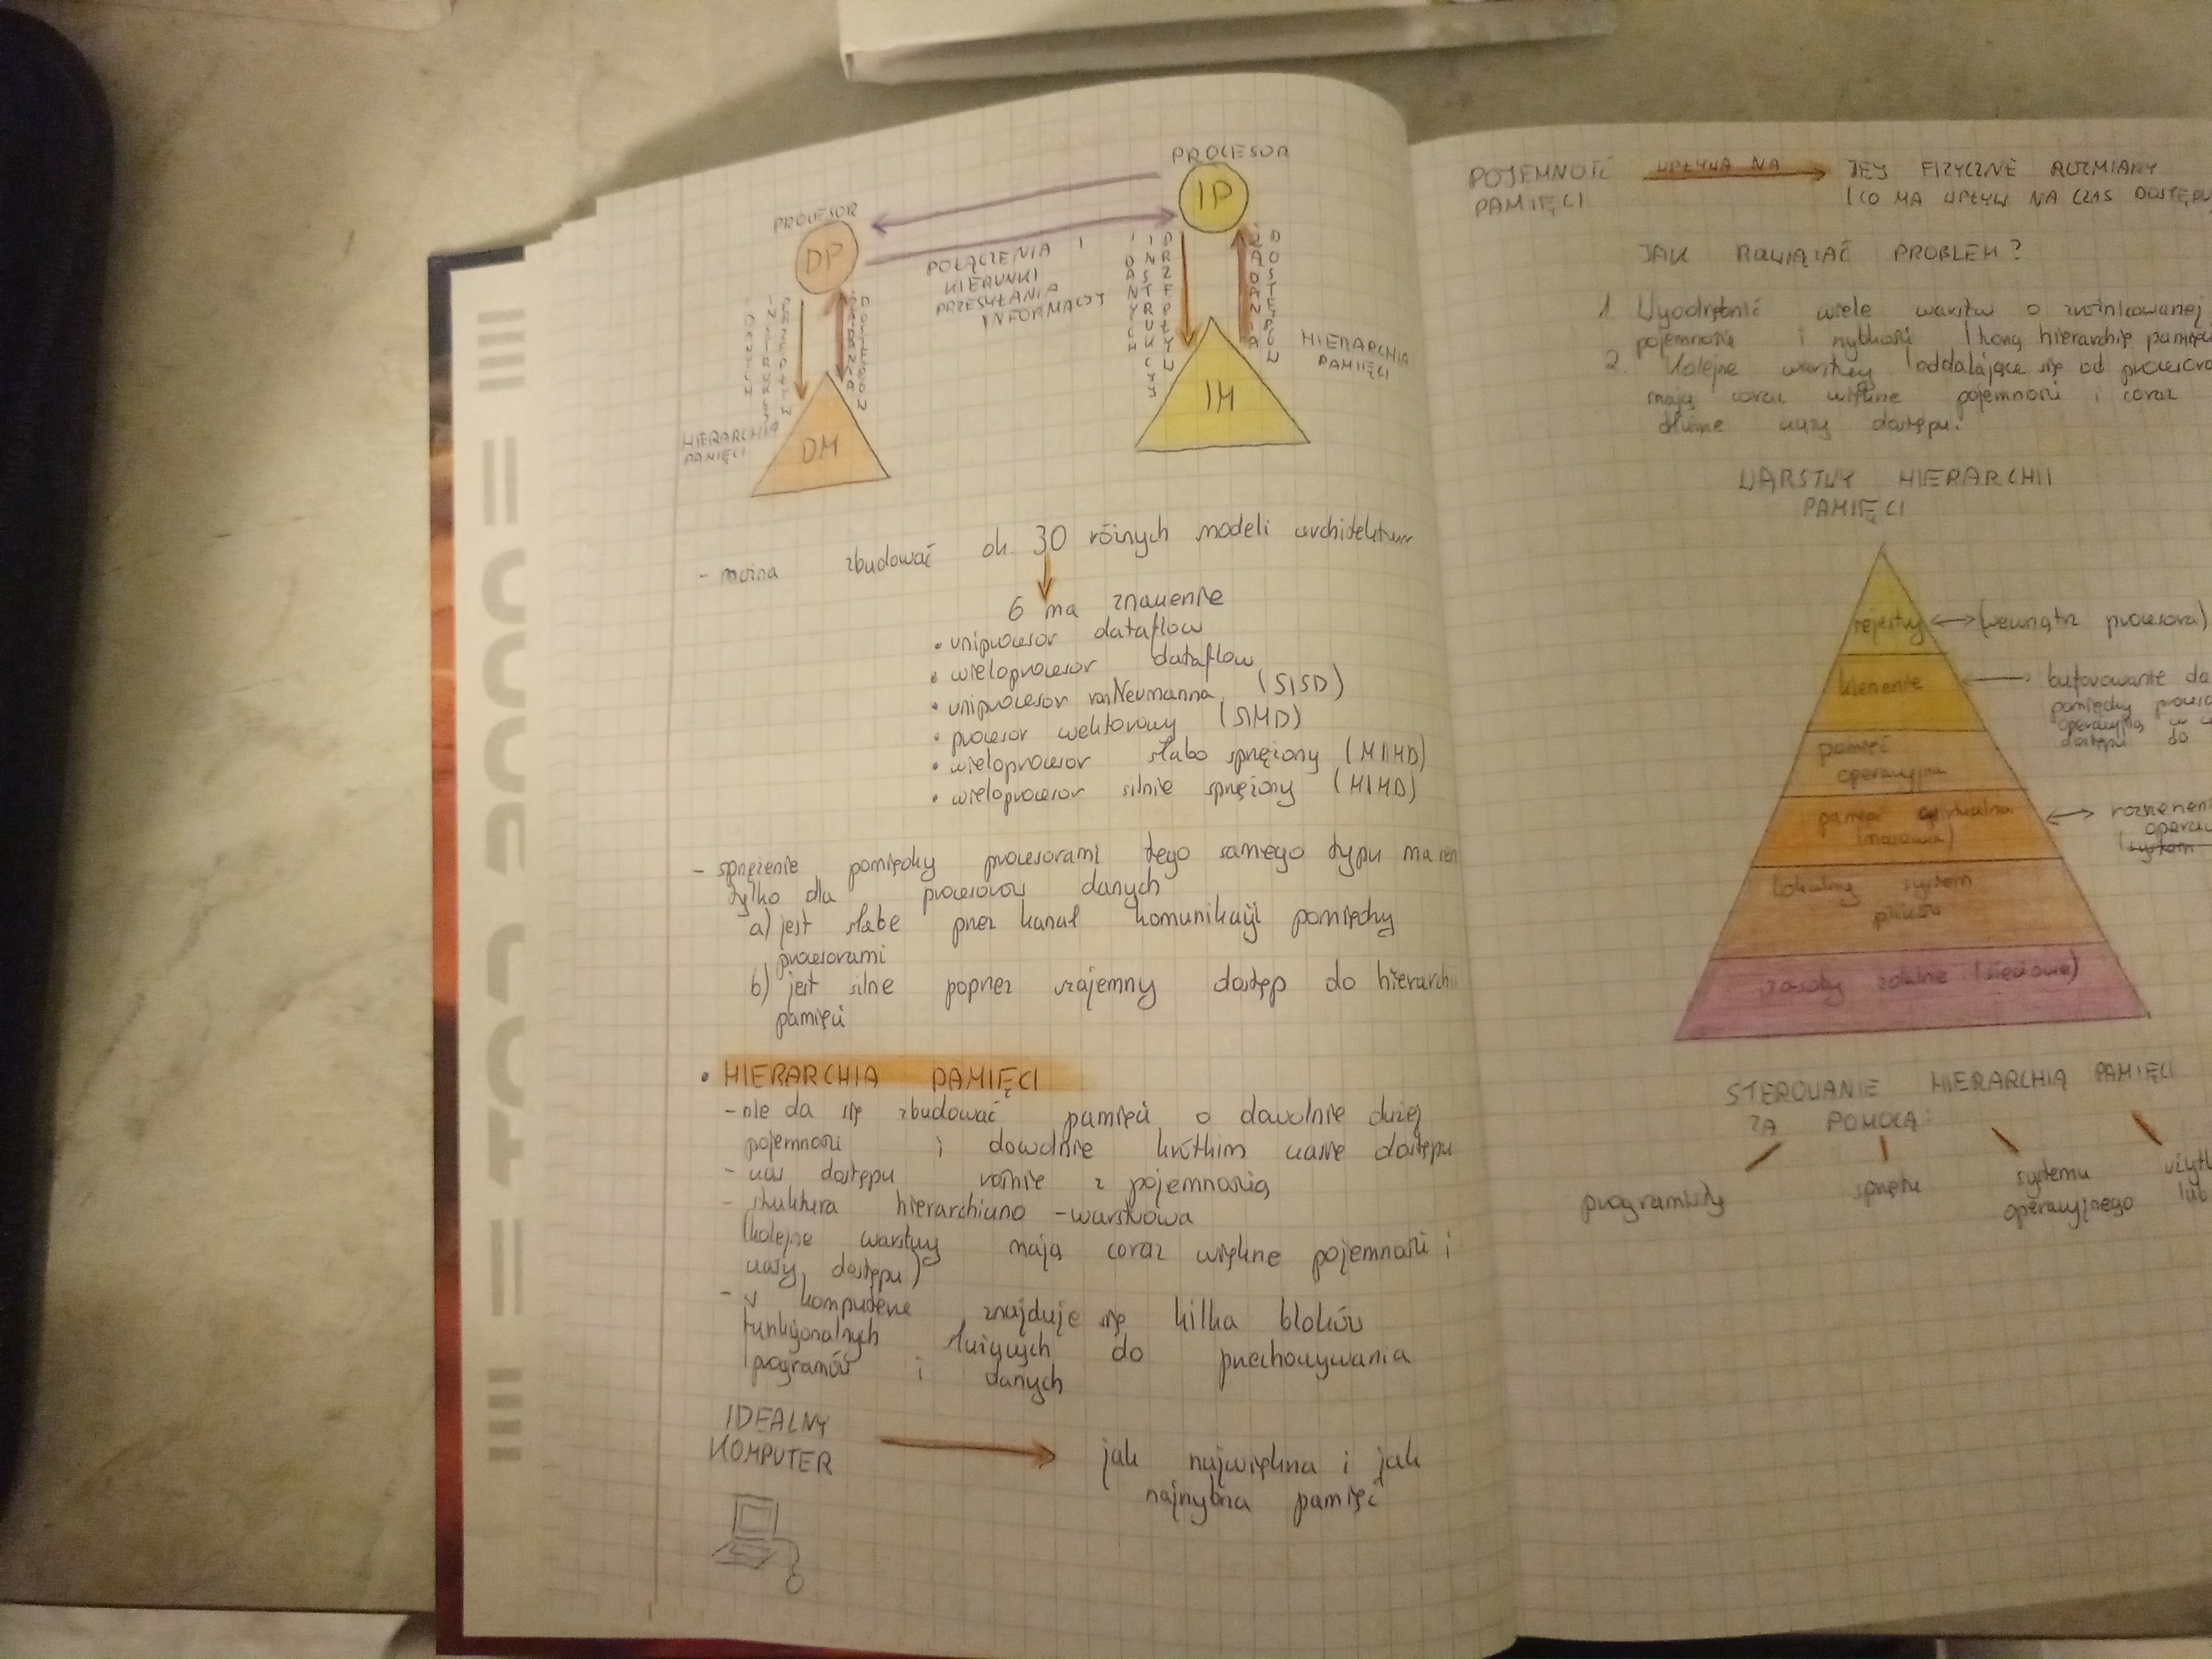 PROCESOR
IP
PROCESOR
DP
POŁĄCZENIA I
KIERUNKI
PRZESYŁANIA
INFORMACJI
PRZEPŁYW
INSTRUKCJI
I DANYCH
ŻĄDANIA
DOSTĘPÓW
HIERARCHIA
PAMIĘCI
IM
HIERARCHIA
PAMIĘCI
DM
- można zbudować ok. 30 różnych modeli architektur
6 ma znaczenie
• uniprocesor dataflow
• wieloprocesor dataflow
• uniprocesor vonNeumanna (SISD)
• procesor wektorowy (SIMD)
• wieloprocesor słabo sprzężony (MIMD)
• wieloprocesor silnie sprzężony (MIMD)
- sprzężenie pomiędzy procesorami tego samego typu ma
tylko dla procesorów danych
a) jest słabe przez kanał komunikacji pomiędzy
procesorami
b) jest silne poprzez wzajemny dostęp do hierarchi
pamięci
• HIERARCHIA PAMIĘCI
- nie da się zbudować pamięci o dowolnie dużej
pojemności i dowolnie krótkim czasie dostępu
- czas dostępu rośnie z pojemnością
- struktura hierarchiczno - warstwowa
(kolejne warstwy mają coraz większe pojemności i
czasy dostępu)
- w komputerze znajduje się kilka bloków
funkcjonalnych służących do przechowywania
programów i danych
IDEALNY
KOMPUTER
jak największa i jak
najszybsza pamięć
POJEMNOŚĆ
PAMIĘCI
WPŁYWA NA
JEJ FIZYCZNE ROZMIARY
(CO MA WPŁYW NA CZAS DOSTĘPU
JAK ROZWIĄZAĆ PROBLEM?
1. Wyodrębnić wiele warstw o zróżnicowanej
pojemności i szybkości (tworzą hierarchię pamięci
2. Kolejne warstwy (oddalające się od procesora
mają coraz większe pojemności i coraz
dłuższe czasy dostępu.
WARSTWY HIERARCHII
PAMIĘCI
rejestry
(wewnątrz procesora)
kieszenie
buforowanie da
pomiędzy proces
operacyjną w
dostępu do
pamięć
operacyjna
pamięć wirtualna
(masowa)
opera
(system
lokalny system
plików
zasoby zdalne (sieciowe)
STEROWANIE HIERARCHIĄ PAMIĘCI
ZA POMOCĄ:
programisty
sprzętu
systemu
operacyjnego
użytk
lub